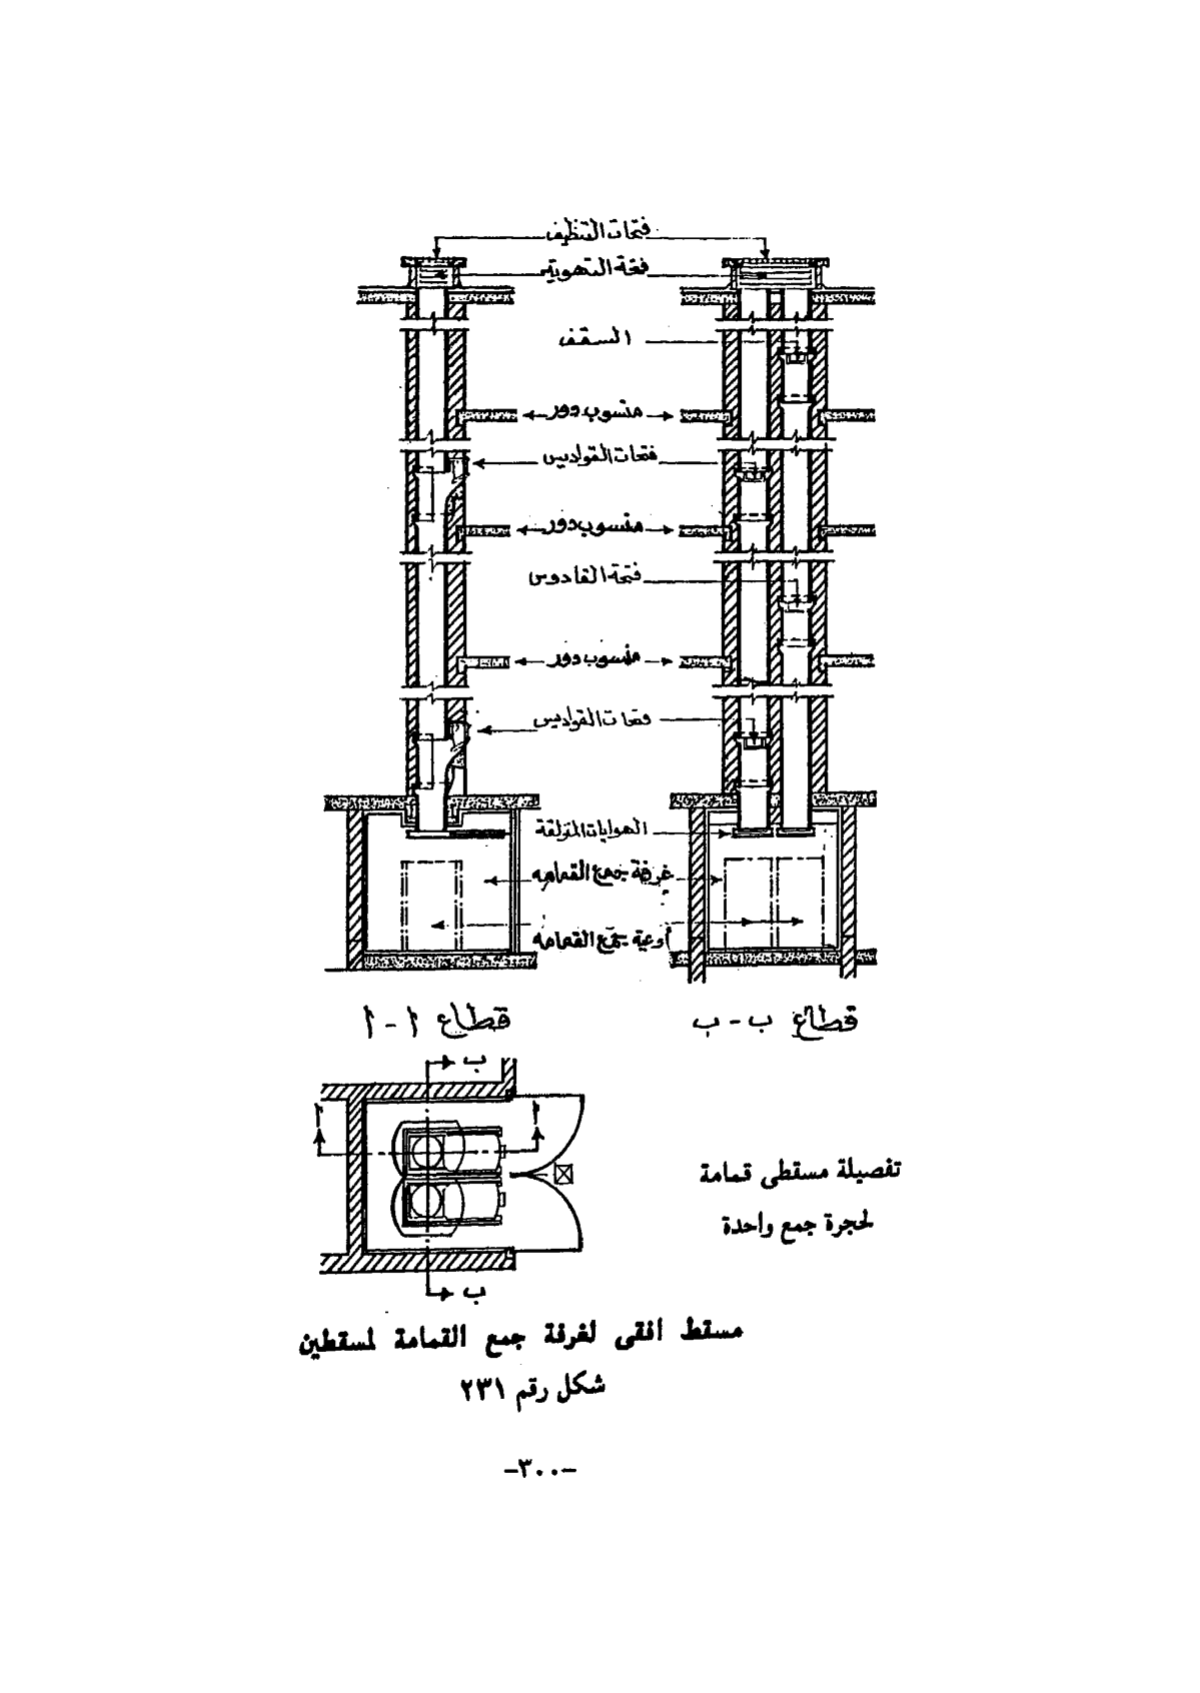 فتحات التنظيف
فتحة التهوية
السقف
منسوب دور
فتحات القواديس
منسوب دور
فتحة القادوس
منسوب دور
فتحات القواديس
الهوايات المنزلقة
غرفة جمع القمامه
أوعية جمع القمامه
قطاع أ - أ
قطاع ب - ب
ب
أ
أ
ب
تفصيلة مسقطى قمامة
لحجرة جمع واحدة
مسقط افقى لغرفة جمع القمامة لمسقطين
شكل رقم ٢٣١
-٣٠٠-